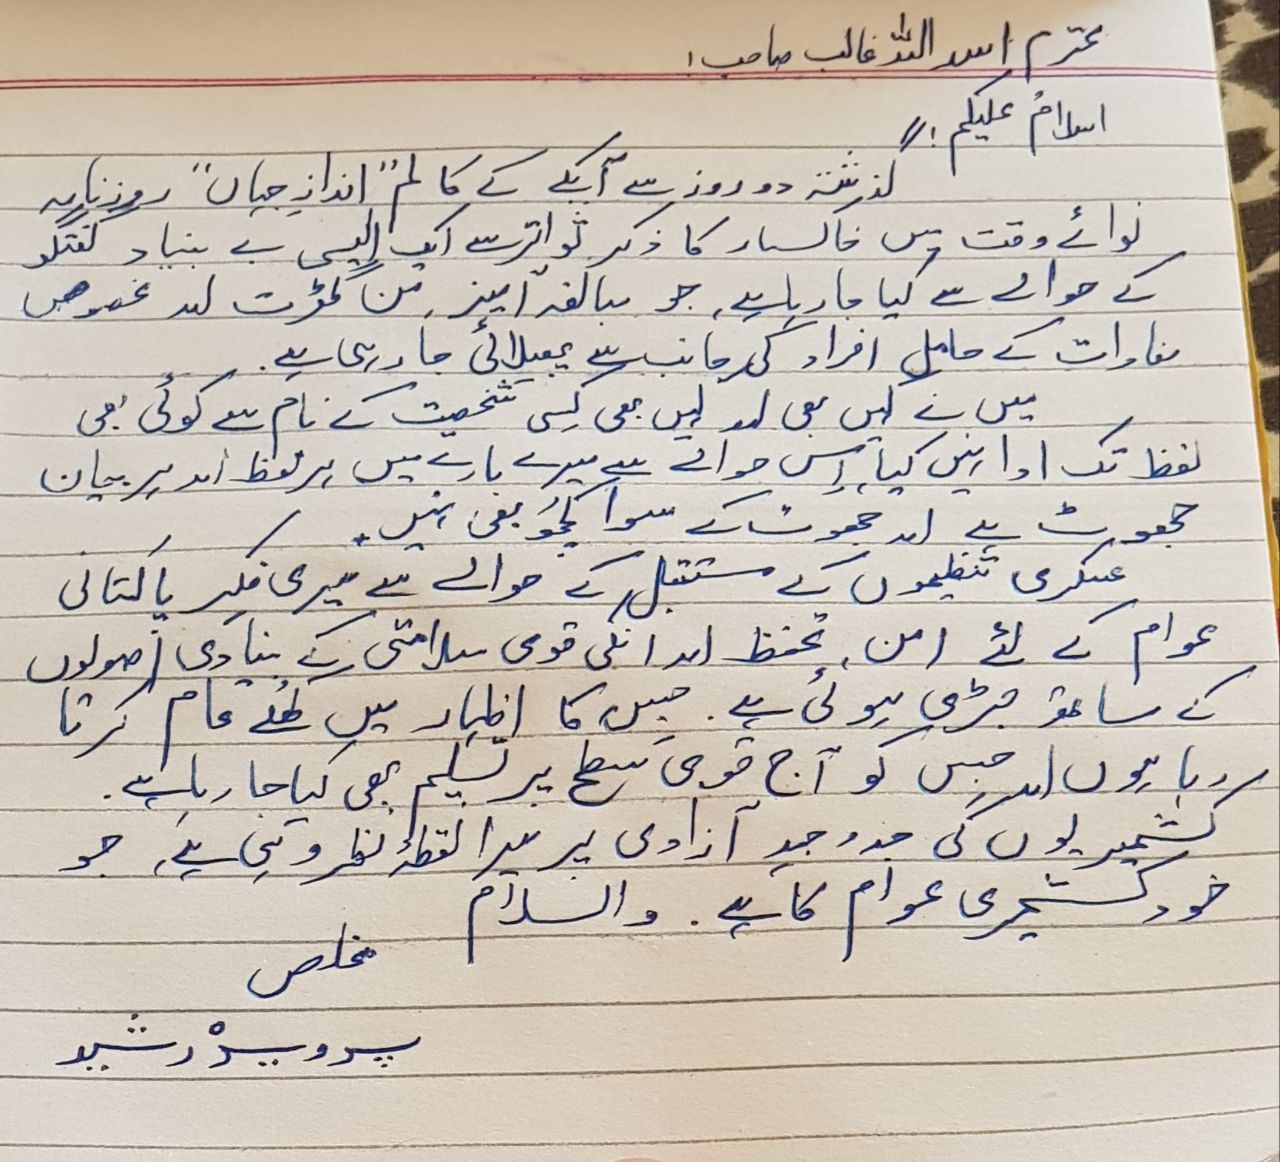 محترم اسد اللہ غالب صاحب!
اسلام علیکم!
گذشتہ دو روز سے آپکے کے کالم "اندازِ جہاں" روزنامہ
نوائے وقت میں خاکسار کا ذکر تواتر سے ایک ایسی بے بنیاد گفتگو
کے حوالے سے کیا جا رہا ہے، جو مبالغہ آمیز، من گھڑت اور مخصوص
مفادات کے حامل افراد کی جانب سے پھیلائی جا رہی ہے۔
میں نے کہیں بھی اور کہیں بھی کسی شخصیت کے نام سے کوئی بھی
لفظ تک ادا نہیں کیا، اِس حوالے سے میرے بارے میں ہر لفظ اور ہر بیان
جھوٹ ہے اور جھوٹ کے سوا کچھ بھی نہیں۔
عسکری تنظیموں کے مستقبل کے حوالے سے میری فکر پاکستانی
عوام کے لئے امن، تحفظ اور انکی قومی سلامتی کے بنیادی اُصولوں
کے ساتھ جڑی ہوئی ہے۔ جس کا اظہار میں کھُلے عام کرتا
رہا ہوں اور جس کو آج قومی سطح پر تسلیم بھی کیا جا رہا ہے۔
کشمیریوں کی جدوجہدِ آزادی پر میرا نقطۂ نظر وہی ہے، جو
خود کشمیری عوام کا ہے۔ والسلام
مخلص
پرویز رشید